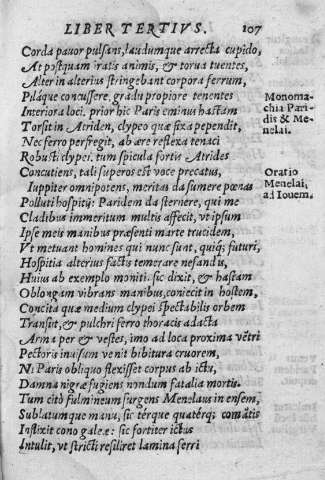 LIBER TERTIVS. 107
Corda pavor pulsans, laudumque arrecta cupido,
At postquam iratis animis, & torua tuentes,
Alter in alterius stringebant corpora ferrum,
Pilàque concussere, gradu propiore tenentes
Interiora loci, prior hic Paris eminus hastam
Torsit in Atriden, clypeo quæ fixa pependit,
Nec ferro perfregit, ab ære reflexa tenaci
Robusti clypei. tum spicula fortis Atrides
Concutiens, tali superos est voce precatus,
Iuppiter omnipotens, meritas da sumere pœnas
Polluti hospitij: Paridem da sternere, qui me
Cladibus immeritum multis affecit, vt ipsum
Ipse meis manibus præsenti marte trucidem,
Vt metuant homines qui nunc sunt, quiq; futuri,
Hospitia alterius factis temerare nefandis,
Huius ab exemplo moniti. sic dixit, & hastam
Oblongam vibrans manibus, coniecit in hostem,
Concita quæ medium clypei spectabilis orbem
Transijt, & pulchri ferro thoracis adacta
Arma per & vestes, imo ad loca proxima vẽtri
Pectoris inuisum venit bibitura cruorem,
Ni Paris obliquo flexisset corpus ab ictu,
Damna nigræ fugiens nondum fatalia mortis.
Tum citò fulmineum surgens Menelaus in ensem,
Sublatumque manu, sic térque quatérq; comãtis
Inflixit cono galeæ: sic fortiter ictus
Intulit, vt stricti resiliret lamina ferri
Monoma-
chia Pari-
dis & Me-
nelai.
Oratio
Menelai,
ad Iouem.